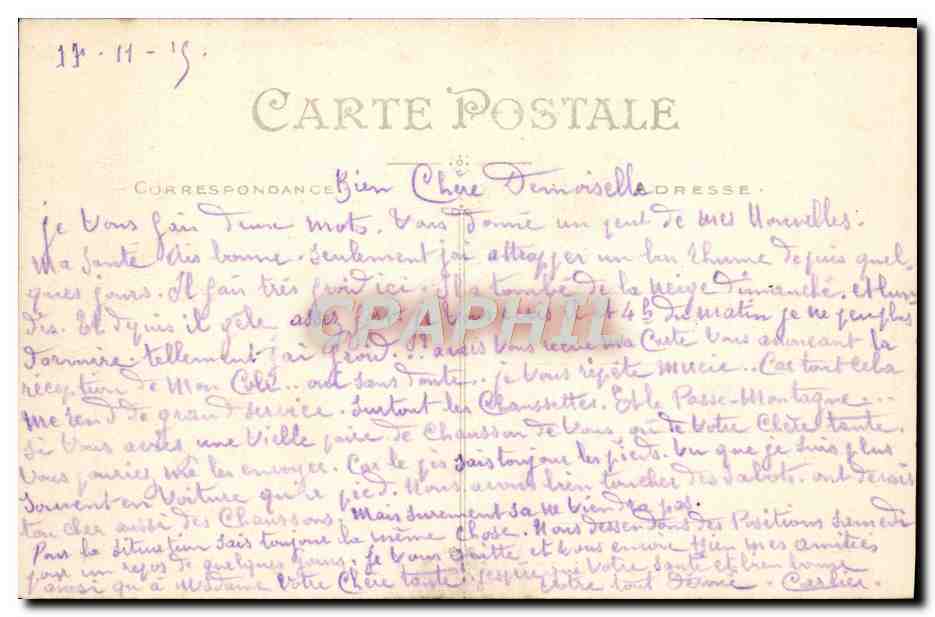 17 - 11 - 15.
CARTE POSTALE
CORRESPONDANCE ADRESSE.
Bien Chère Demoiselle
je Vous fair deux mots. Vous donné un peut de mes Nouvelles.
Ma Santé bonne. Seulement j'ai attrapper un bon Rhume depuis quel-
ques jours. Il fair très froid ici. Il a tombé de la neige Dimanche. et lun-
dis. Et depuis il gèle asser 4h du matin je ne peu plus
Dormire. tellement j'ai froid... Vous recu ma Carte Vous anoncant la
reception de Mon Colis.. oui sans doute. je Vous repéte mercie.. Car tout cela
me rend de grand service. Surtout les Chaussettes. Et le Passe-Montagne...
Si Vous aviés une Vielle paire de Chausson de Vous, ou de Votre Chère tante.
Vous pouriez me les envoyer. Car le pis sais toujour les pieds. Vu que je suis plus
Souvent en Voiture qu'a pied. Nous avons bien toucher des Sabots. ont devais
toucher aussi des Chaussons Mais surement sa ne Vien dra pas.
Pour la Situation sais toujour la même Chose. Nous dessendons des Positions Samedi
pour un repos de quelques jours. Je Vous quitte et Vous envoie Bien mes amitiés
ainsi qu'a Madame Votre Chère tante. j'espère que Votre santé et bien bonne
Votre tout Carlier.
GRAPHIL